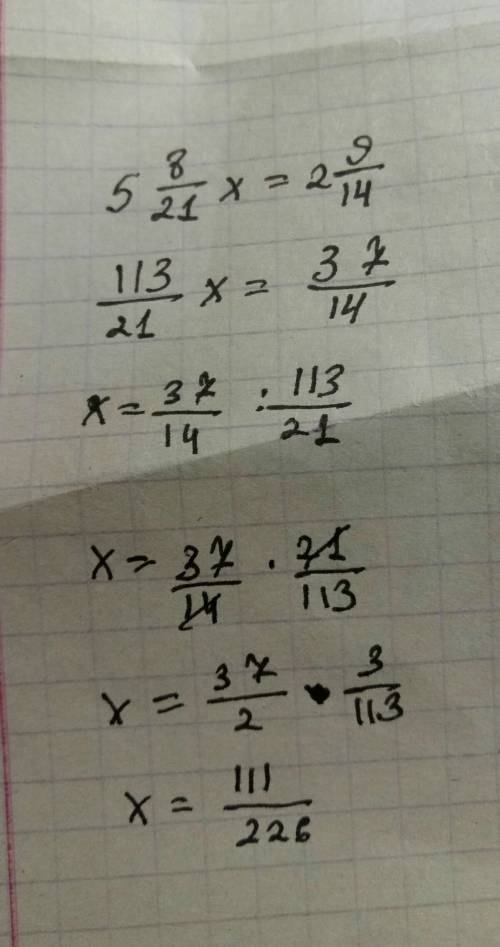 5 8/21 x = 2 9/14
113/21 x = 37/14
x = 37/14 : 113/21
x = 37/14 · 21/113
x = 37/2 · 3/113
x = 111/226